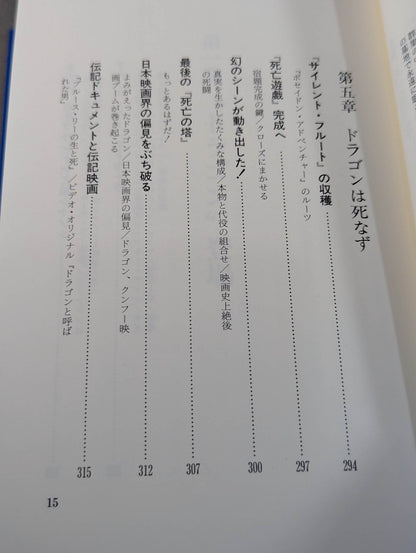 第五章　ドラゴンは死なず
『サイレント・フルート』の収穫 294
『ポセイドン・アドベンチャー』のルーツ
『死亡遊戯』完成へ 297
宿題完成の鍵／クローズにまかせる
幻のシーンが動き出した！ 300
真実を生かしたたくみな構成／本物と代役の組合せ／映画史上絶後
の死闘
最後の『死亡の塔』 307
もっとあるはずだ！
日本映画界の偏見をぶち破る 312
まみがえったドラゴン／日本映画界の偏見／ドラゴン、クンフー映
画ブームが巻き起こる
伝記ドキュメントと伝記映画 315
『ブルース・リーの生と死』／ビデオ・オリジナル『ドラゴンと呼ば
れた男』
15